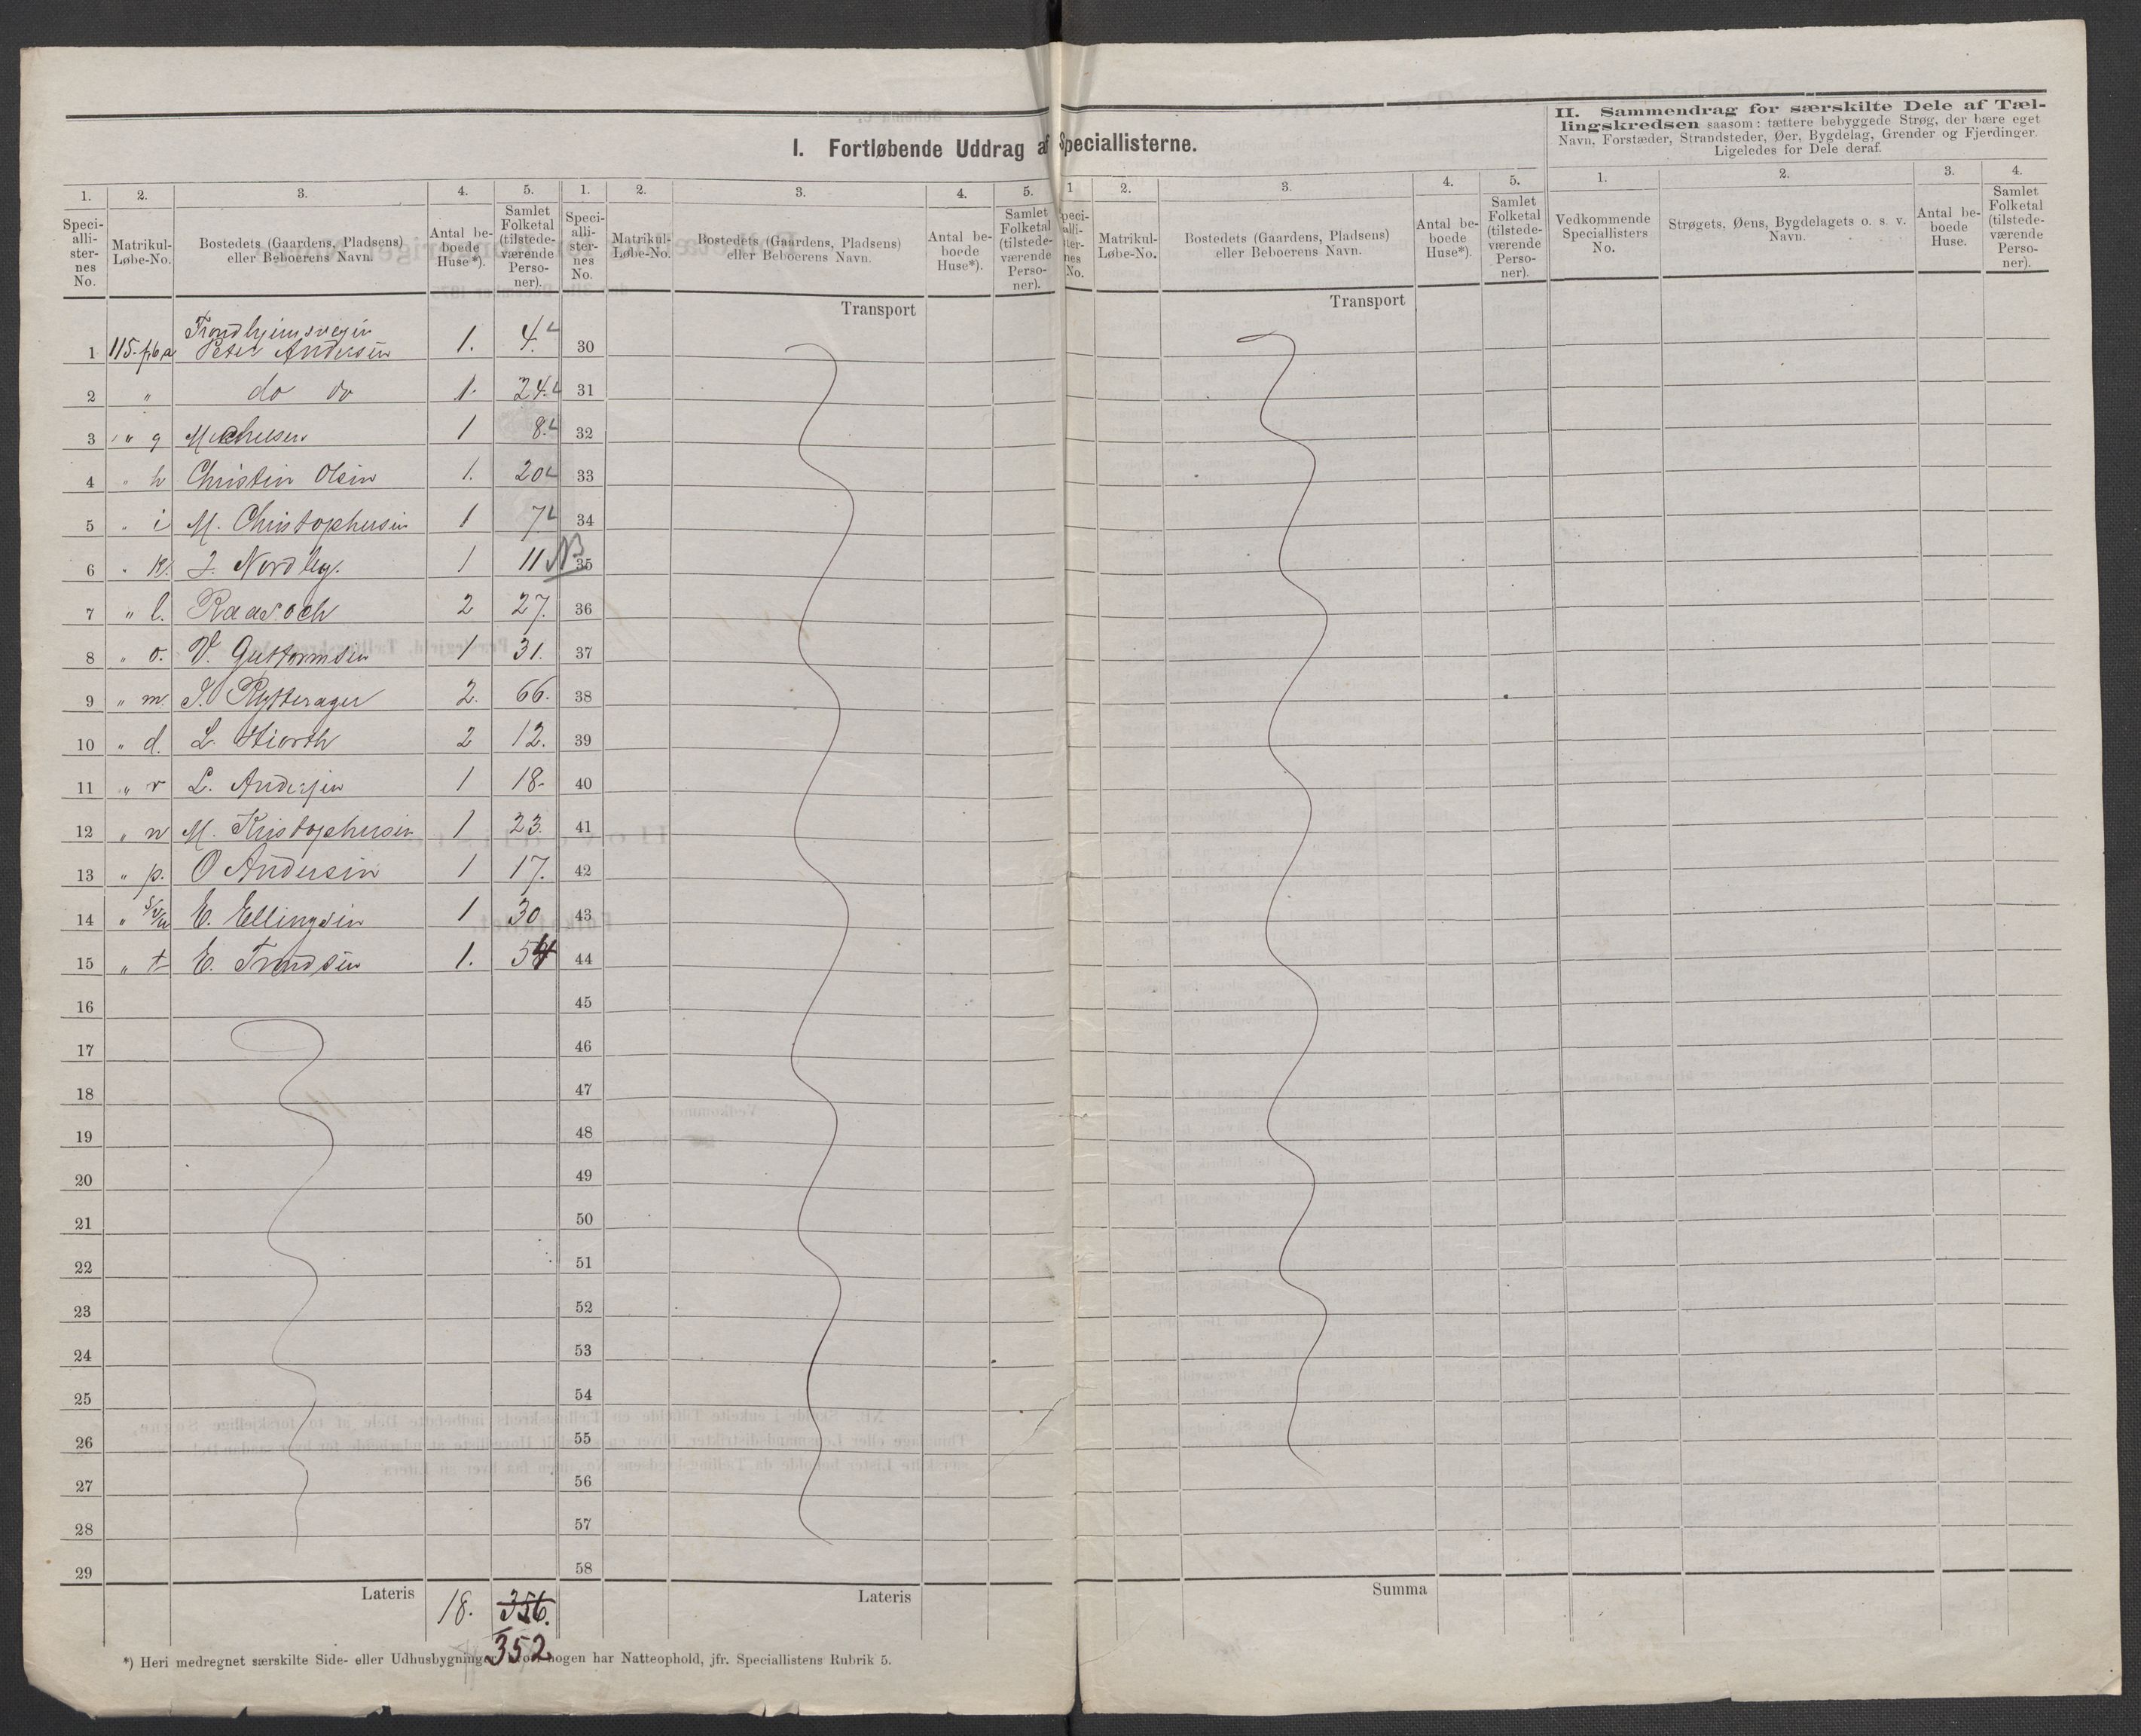 I. Fortløbende Uddrag af Speciallisterne.
II. Sammendrag for særskilte Dele af Tæl-
lingskredsen saasom: tættere bebyggede Strøg, der bære eget
Navn, Forstæder, Strandsteder, Øer, Bygdelag, Grender og Fjerdinger.
Ligeledes for Dele deraf.
1. 2. 3. 4. 5. 1. 2. 3. 4. 5. 1 2. 3. 4. 5. 1. 2. 3. 4.
Speci-
alli-
ster-
nes
No.
Matrikul-
Løbe-No.
Bostedets (Gaardens, Pladsens)
eller Beboerens Navn.
Antal be-
boede
Huse*).
Samlet
Folketal
(tilstede-
værende
Perso-
ner).
Speci-
alli-
ster-
nes
No.
Matrikul-
Løbe-No.
Bostedets (Gaardens, Pladsens)
eller Beboerens Navn.
Antal be-
boede
Huse*).
Samlet
Folketal
(tilstede-
værende
Perso-
ner).
peci-
alli-
ster-
nes
No.
Matrikul-
Løbe-No.
Bostedets (Gaardens, Pladsens)
eller Beboerens Navn.
Antal be-
boede
Huse*).
Samlet
Folketal
(tilstede-
værende
Perso-
ner).
Vedkommende
Speciallisters
No.
Strøgets, Øens, Bygdelagets o. s. v.
Navn.
Antal be-
boede
Huse.
Samlet
Folketal
(tilstede-
værende
Perso-
ner).
Transport Transport
Trondhjemsvejen
1 115. Peter Andersen 1. 4. 30
2 " do do 1. 24. 31
3 " g Michelsen 1 8. 32
4 " h Christin Olsen 1. 20 33
5 " i M. Christophersen 1 7 34
6 " k. J. Nordby. 1 11 NB 35
7 " l. Raasoch 2 27. 36
8 " o. V. Guttormsen 1 31. 37
9 " m. J. Rytterager 2. 66. 38
10 " d. L. Hiorth 2 12. 39
11 " r L. Andersen 1 18. 40
12 " n M. Kristophersen 1 23. 41
13 " p. O Andersen 1 17. 42
14 " E. Ellingsen 1 30 43
15 " t E. Trondsen 1. 54 44
16 45
17 46
18 47
19 48
20 49
21 50
22 51
23 52
24 53
25 54
26 55
27 56
28 57
29 58
Lateris 18. 356. Lateris Summa
352
*) Heri medregnet særskilte Side- eller Udhusbygninger, hvori nogen har Natteophold, jfr. Speciallistens Rubrik 5.